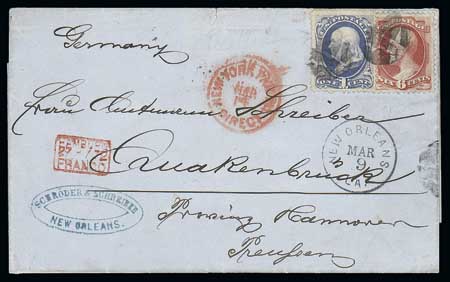 Germany
U.S. POSTAGE
ONE 1 CENT
SIX 6 CENTS
NEW YORK
DIRECT
MAR
Frau Amtmann Schreiber
FRANCO
Quakenbruck
NEW ORLEANS
MAR
9
LA.
SCHRÖDER & SCHREIBER
NEW ORLEANS.
Provinz Hannover
Preussen